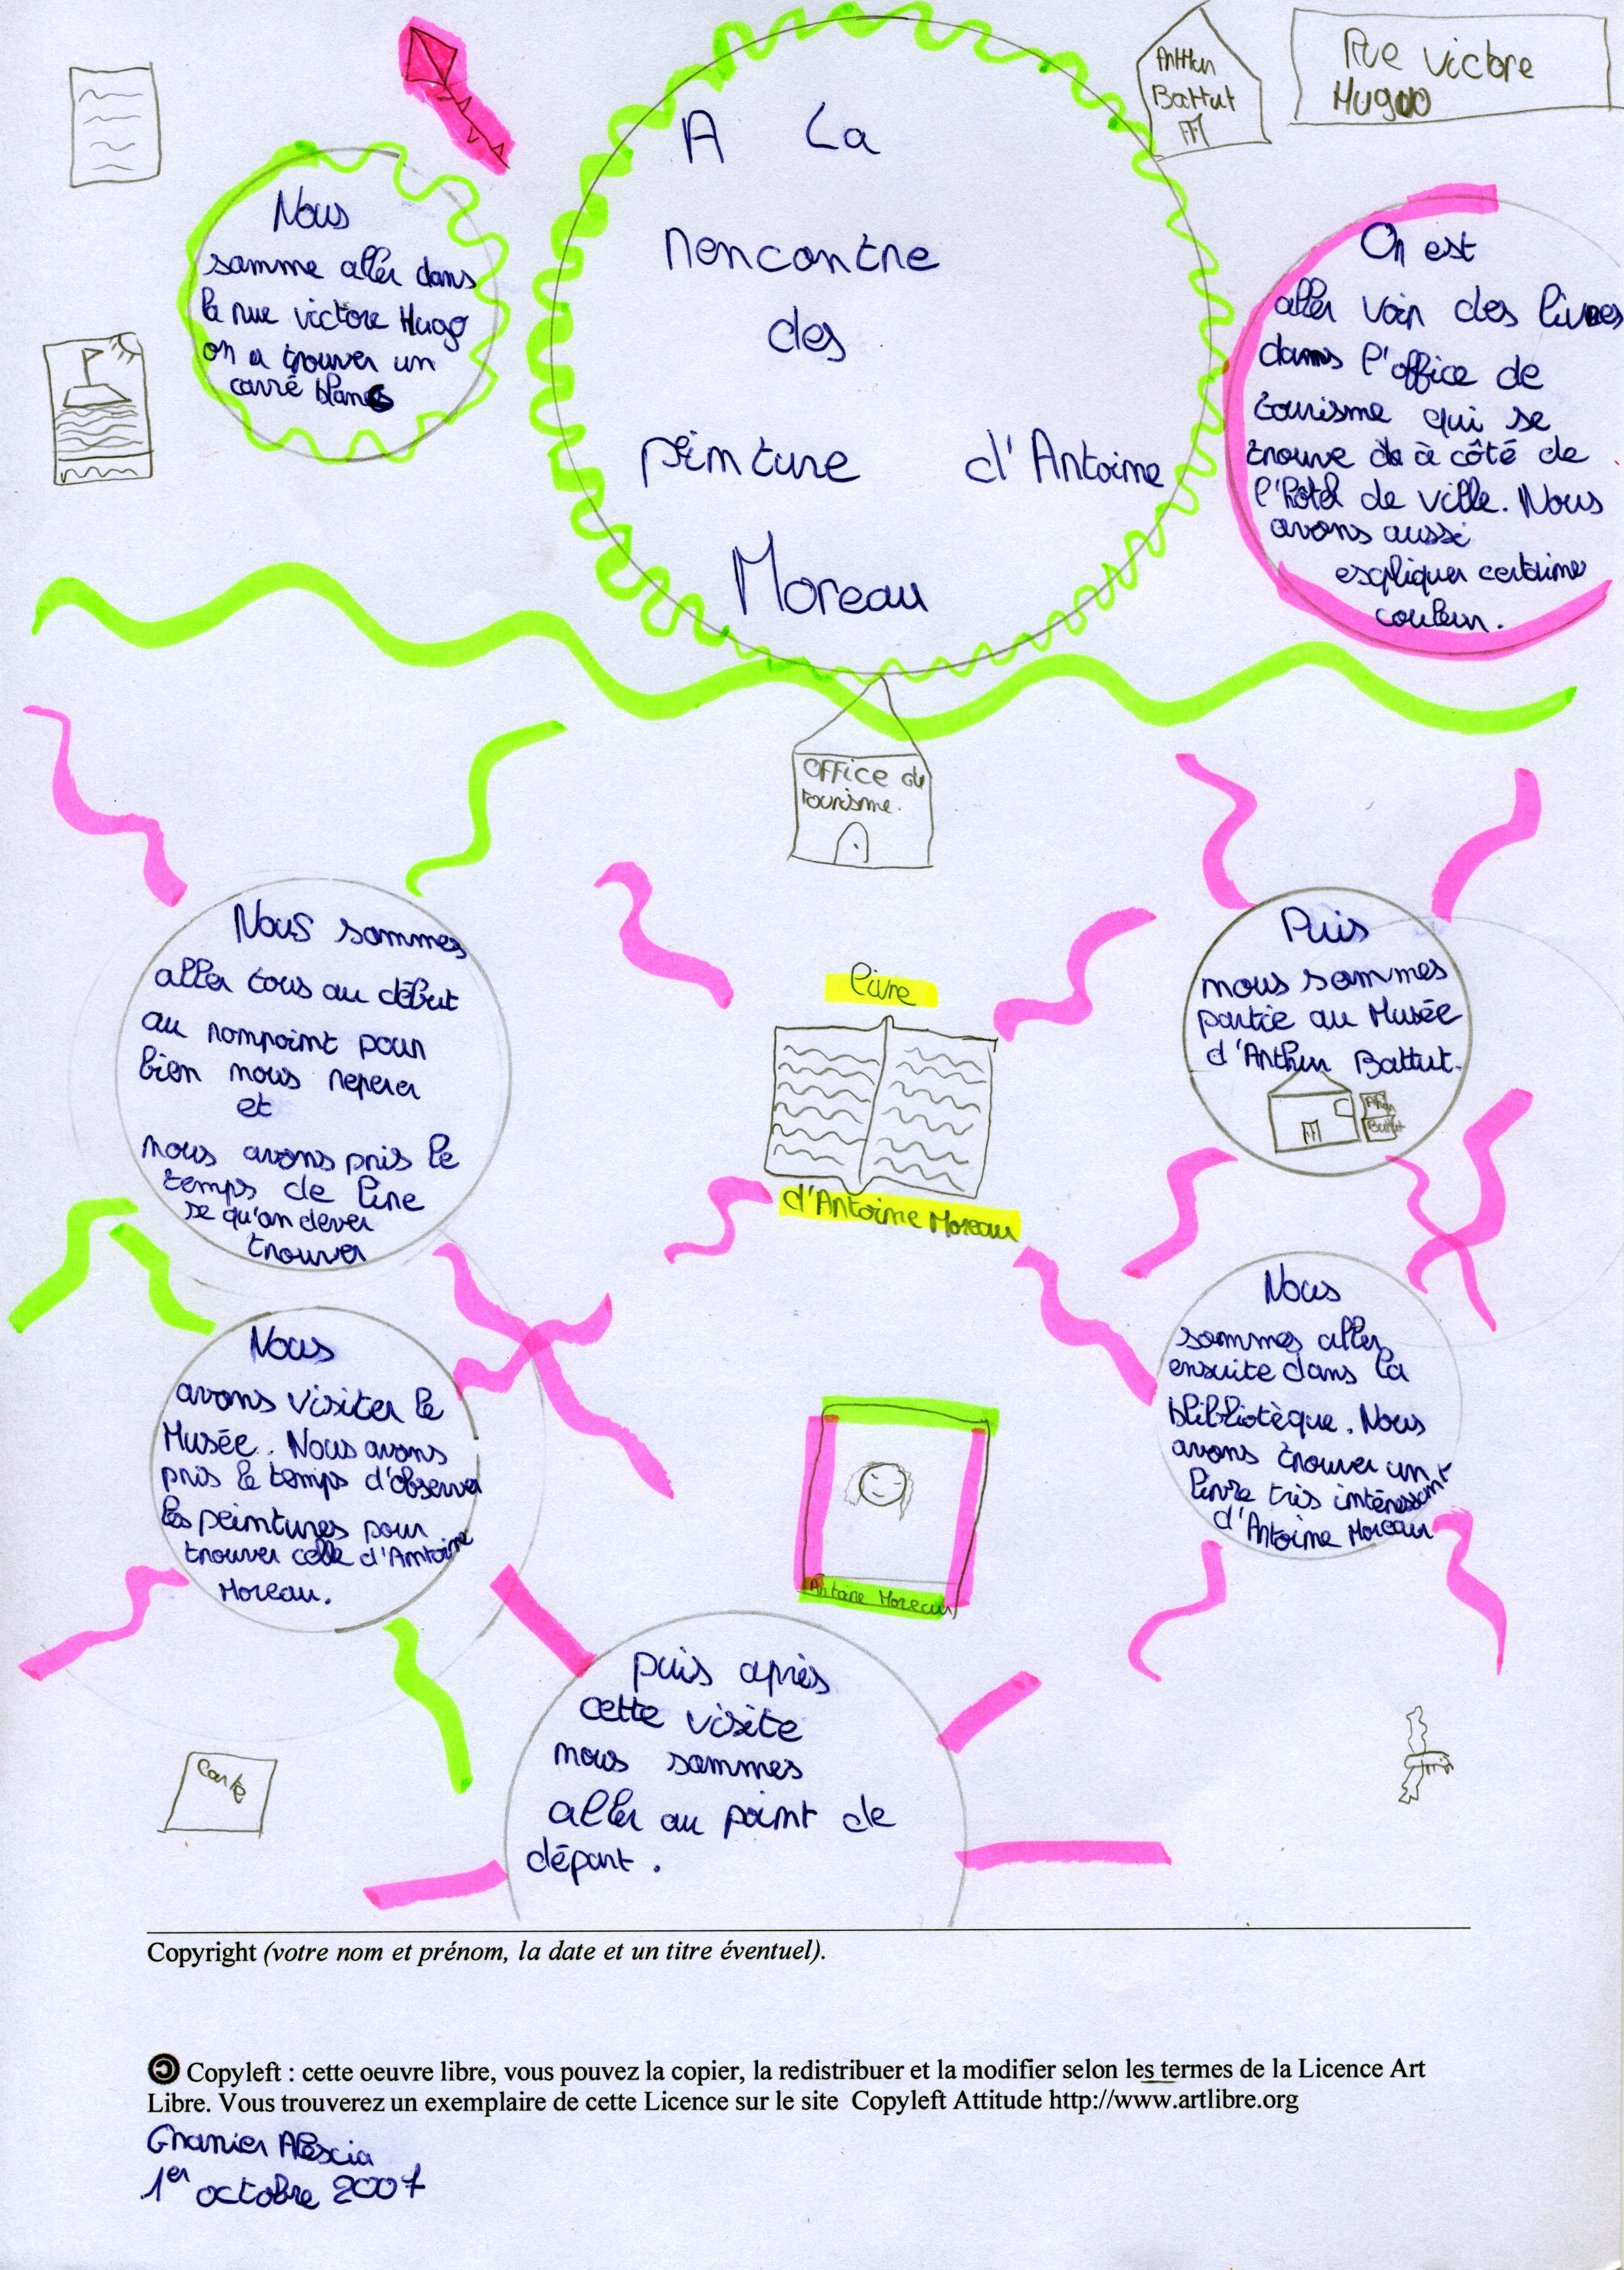 A La
rencontre
des
peinture d'Antoine
Moreau
Arthur
Battut
Rue victore
Hugo
Nous
somme aller dans
la rue victore Hugo
on a trouver un
carré blanc
On est
aller voir des livres
dans l'office de
tourisme qui se
trouve à côté de
l'hôtel de ville. Nous
avons aussi
expliquer certaine
couleur.
OFFice du
tourisme.
Nous sommes
aller tous au début
au rompoint pour
bien nous reperer
et
nous avons pris le
temps de lire
se qu'on dever
trouver
livre
d'Antoine Moreau
Puis
nous sommes
partie au Musée
d'Arthur Battut.
Arthur
Battut
Nous
avons visiter le
Musée. Nous avons
pris le temps d'observer
les peintures pour
trouver celle d'Antoine
Moreau.
Nous
sommes aller
ensuite dans la
blibliotèque. Nous
avons trouver un
livre très intéressant
d'Antoine Moreau
Antoine Moreau
puis après
cette visite
nous sommes
aller au point de
départ.
Carte
Copyright (votre nom et prénom, la date et un titre éventuel).
Copyleft : cette oeuvre libre, vous pouvez la copier, la redistribuer et la modifier selon les termes de la Licence Art
Libre. Vous trouverez un exemplaire de cette Licence sur le site Copyleft Attitude http://www.artlibre.org
Granier Alescia
1er octobre 2007